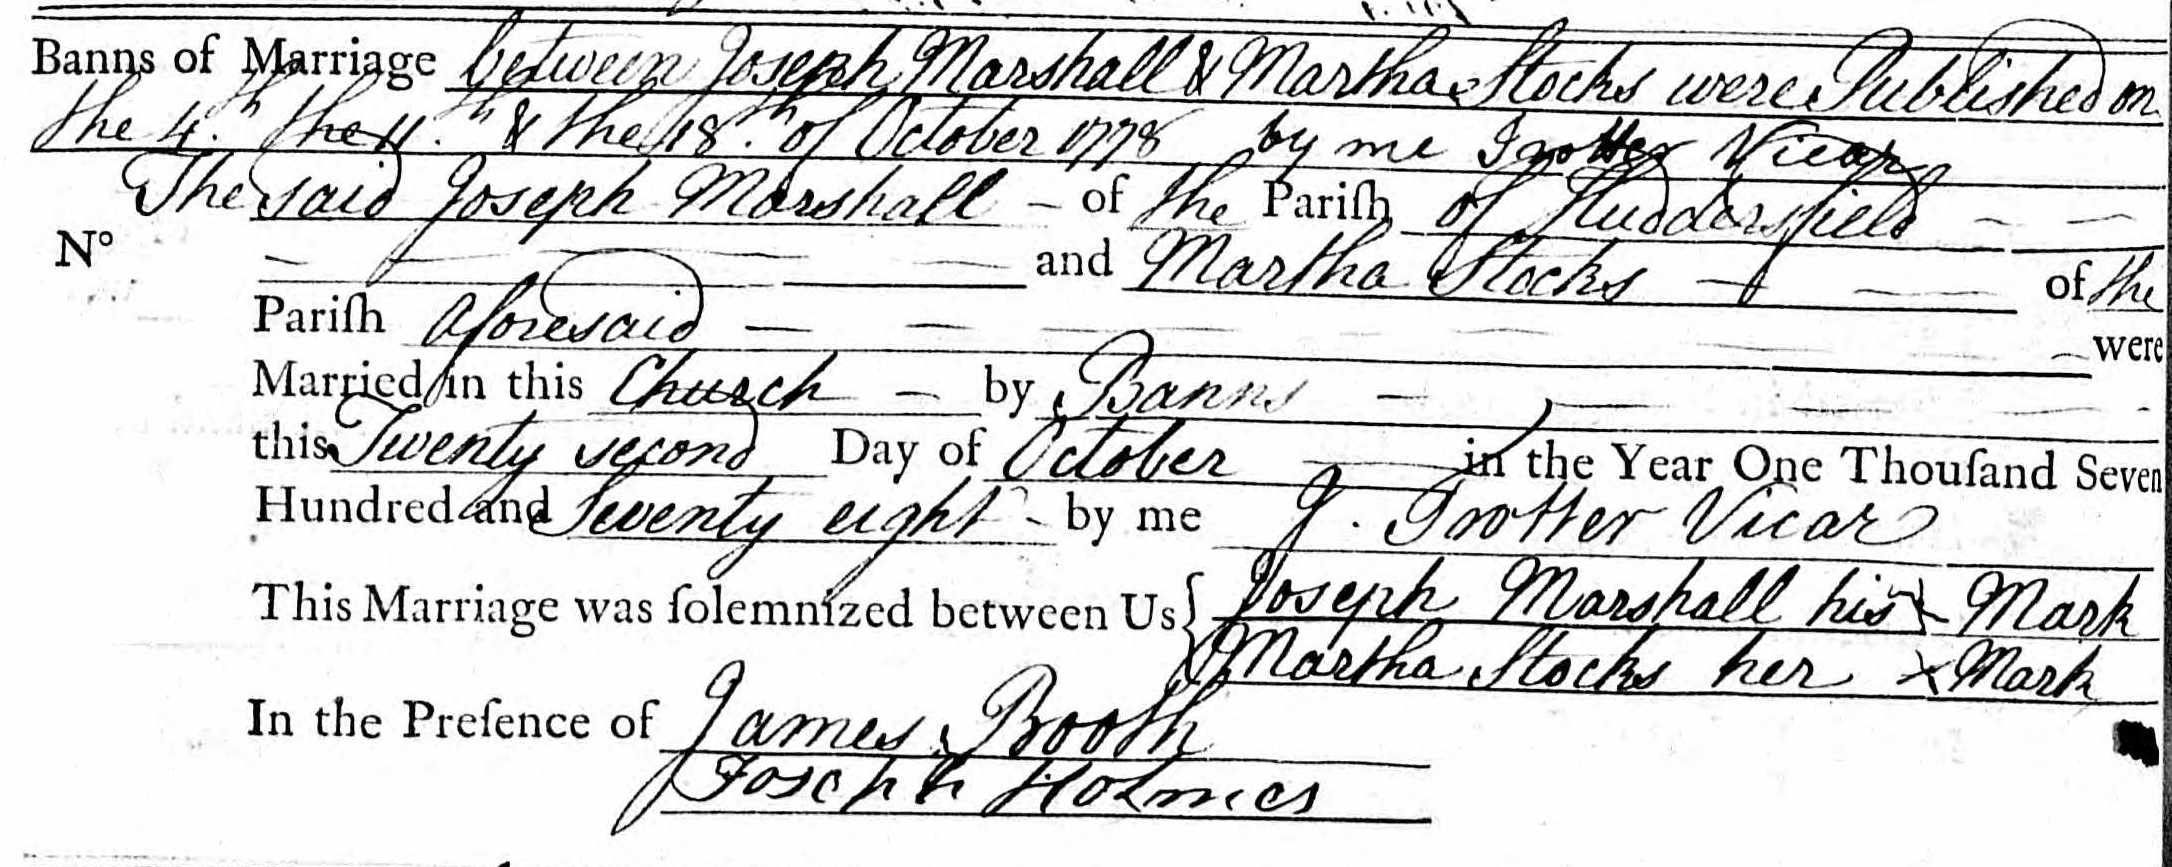 Banns of Marriage between Joseph Marshall & Martha Stocks were Published on
the 4.th the 11.th & the 18.th of October 1778 by me Trotter Vicar
The said Joseph Marshall – of the Pariſh of Huddersfield
No and Martha Stocks – of the
Pariſh aforesaid – were
Married in this Church – by Banns –
this Twenty second Day of October in the Year One Thouſand Seven
Hundred and Seventy eight – by me J. Trotter Vicar
This Marriage was ſolemnized between Us { Joseph Marshall his x Mark
Martha Stocks her x Mark
In the Preſence of James Booth
Joseph Holmes